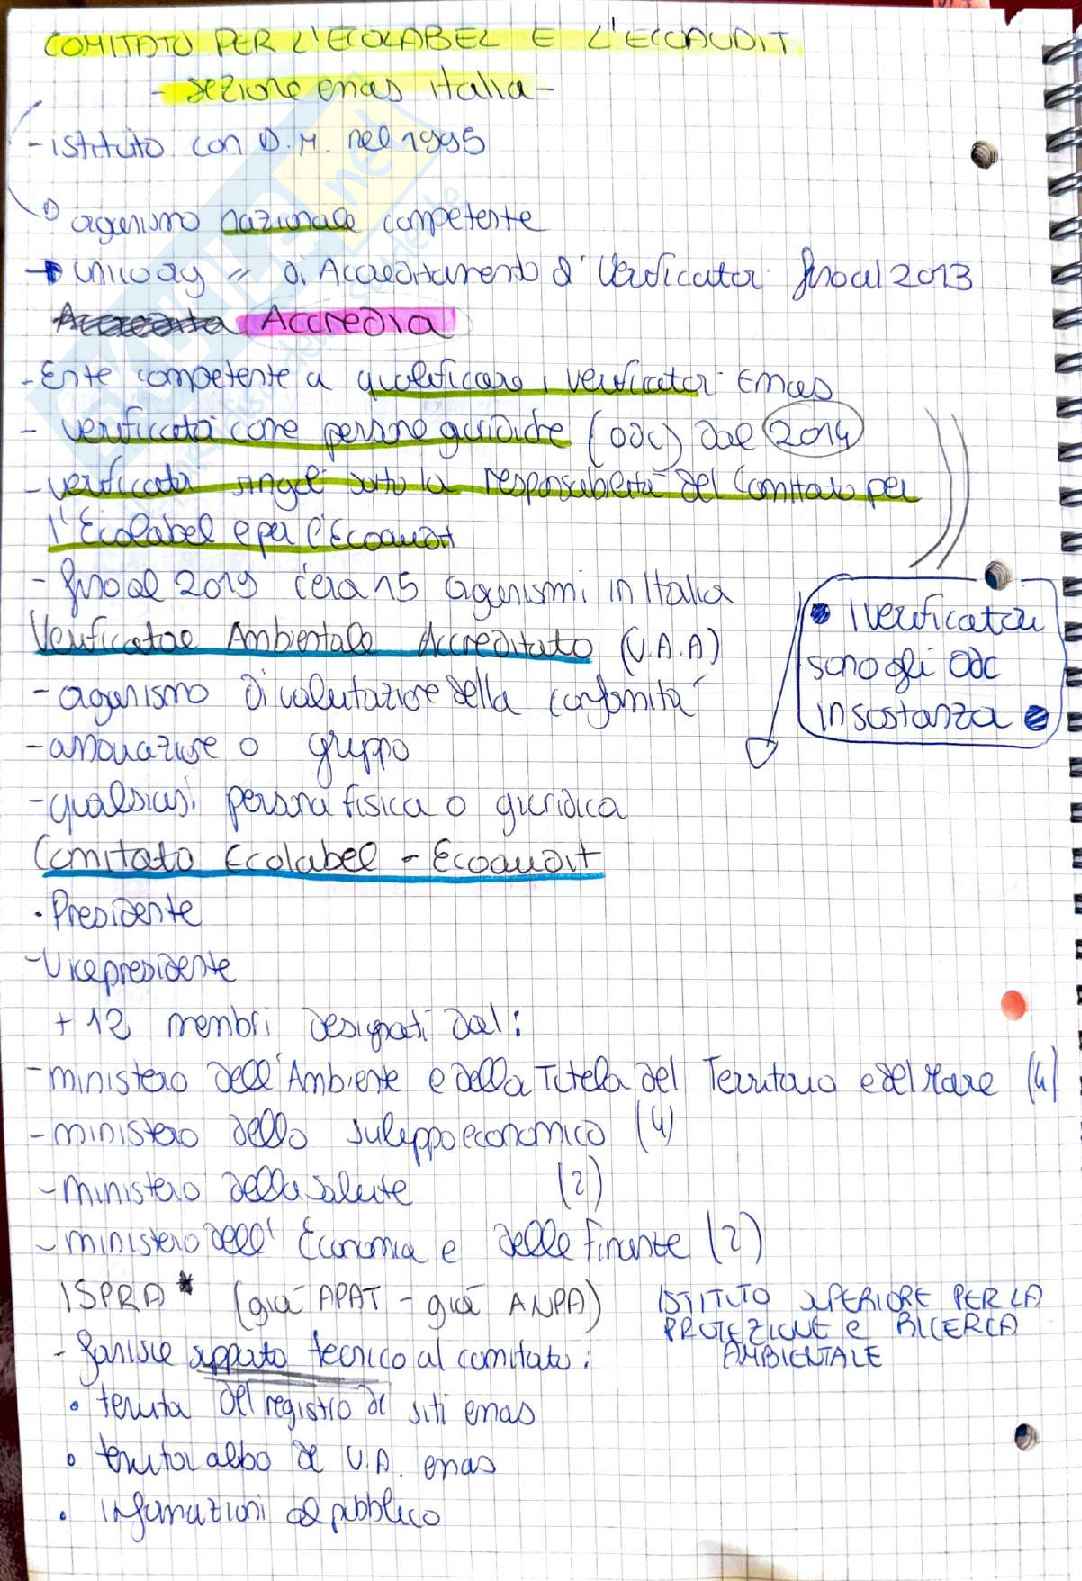 COMITATO PER L'ECOLABEL E L'ECOAUDIT
- sezione emas italia -
- istituito con D.M. nel 1995
organismo nazionale competente
unico org " di Accreditamento di Verificatori fino al 2013
Accredia
- Ente competente a qualificare i verificatori Emas
- verificatori come persone giuridiche (odc) dal 2014
- verificatori singoli sotto la responsabilità del Comitato per
l'Ecolabel e per l'Ecoaudit
- fino al 2019 c'era 15 organismi in Italia
Verificatore Ambientale Accreditato (V.A.A)
• I verificatori
sono gli Odc
in sostanza •
- organismo di valutazione della conformità
- associazione o gruppo
- qualsiasi persona fisica o giuridica
Comitato Ecolabel - Ecoaudit
· Presidente
- Vicepresidente
+ 12 membri designati dal:
- ministero dell'Ambiente e della Tutela del Territorio e del Mare (4)
- ministero dello sviluppo economico (4)
- ministero della salute (2)
- ministero dell' Economia e delle finanze (2)
ISPRA * (già APAT - già ANPA)
ISTITUTO SUPERIORE PER LA
PROTEZIONE e RICERCA
AMBIENTALE
- fornisce supporto tecnico al comitato:
• tenuta del registro di siti emas
• tenuta albo di V.A. emas
• informazioni al pubblico